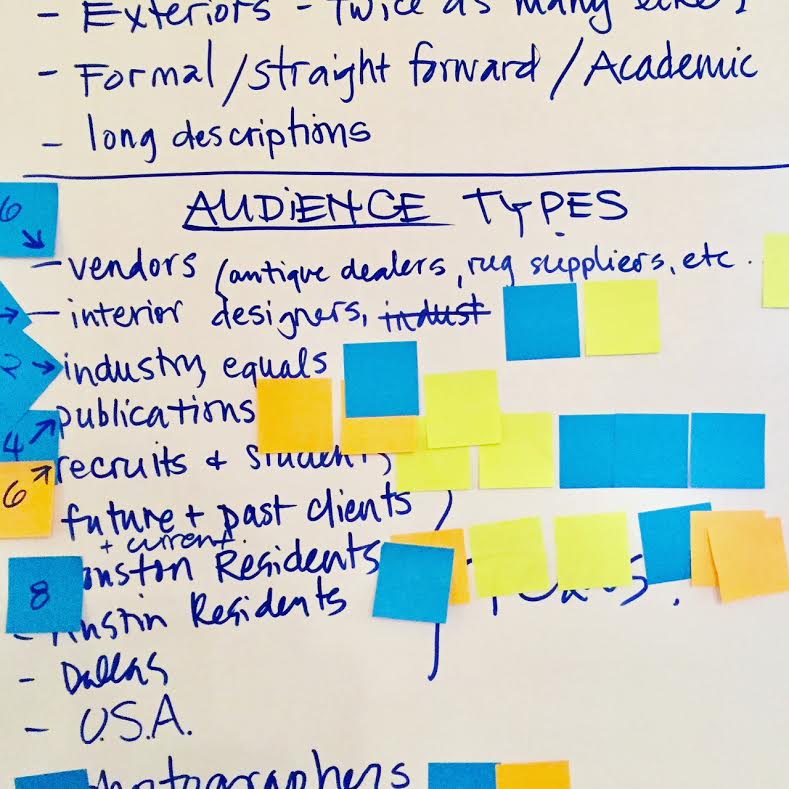 - Exteriors - twice as many likes
- Formal/straight forward/Academic
- long descriptions
AUDIENCE TYPES
6
- vendors (antique dealers, rug suppliers, etc.
- interior designers, indust
2 → industry equals
publications
4
recruits & students
6
future + past clients
+ current
ouston Residents
8
- Austin Residents
- Dallas
- U.S.A.
photographers